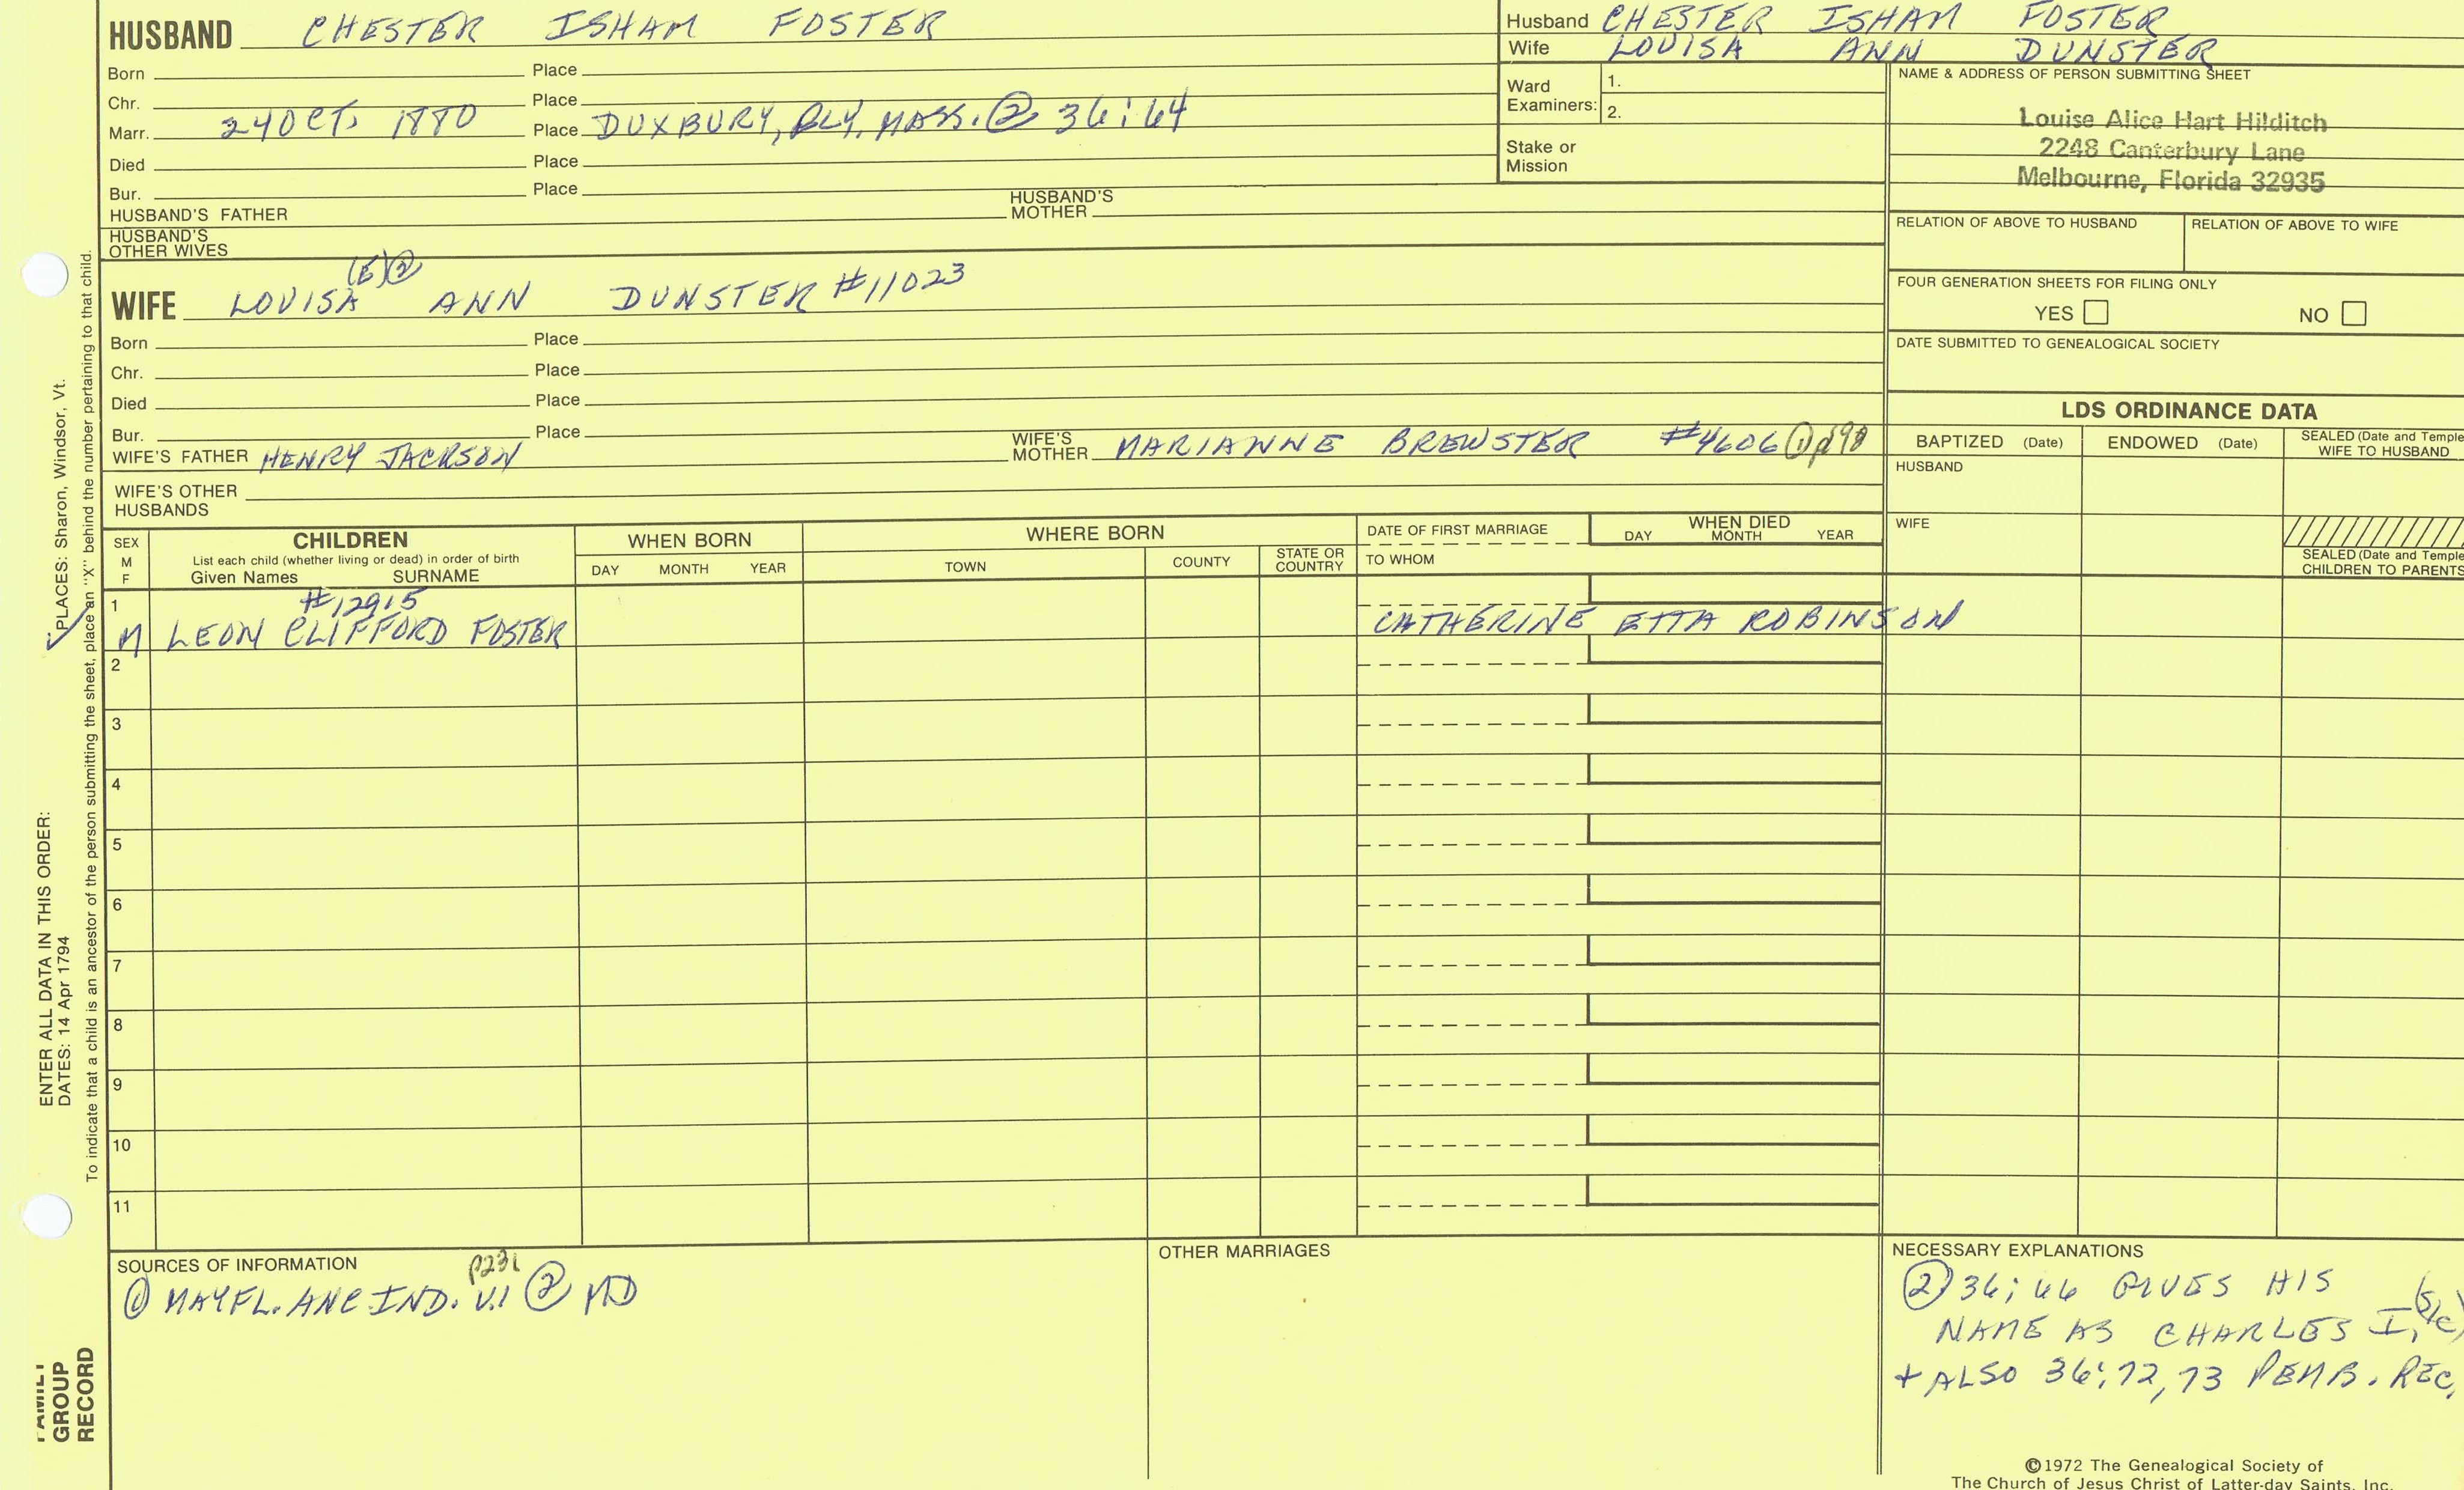 HUSBAND CHESTER ISHAM FOSTER
Born Place
Chr. Place
Marr. 24 OCT. 1880 Place DUXBURY, PLY, MASS. ② 36:64
Died Place
Bur. Place
HUSBAND'S FATHER HUSBAND'S MOTHER
HUSBAND'S OTHER WIVES
Husband CHESTER ISHAM FOSTER
Wife LOUISA ANN DUNSTER
Ward Examiners: 1.
2.
Stake or Mission
NAME & ADDRESS OF PERSON SUBMITTING SHEET
Louise Alice Hart Hilditch
2248 Canterbury Lane
Melbourne, Florida 32935
RELATION OF ABOVE TO HUSBAND RELATION OF ABOVE TO WIFE
FOUR GENERATION SHEETS FOR FILING ONLY
YES NO
DATE SUBMITTED TO GENEALOGICAL SOCIETY
(E)②
WIFE LOUISA ANN DUNSTER #11023
Born Place
Chr. Place
Died Place
Bur. Place
WIFE'S FATHER HENRY JACKSON WIFE'S MOTHER MARIANNE BREWSTER #4606 ① p98
WIFE'S OTHER HUSBANDS
LDS ORDINANCE DATA
BAPTIZED (Date) ENDOWED (Date) SEALED (Date and Temple
WIFE TO HUSBAND
HUSBAND
WIFE
SEALED (Date and Temple
CHILDREN TO PARENTS
SEX
M
F
CHILDREN
List each child (whether living or dead) in order of birth
Given Names SURNAME
WHEN BORN
DAY MONTH YEAR
WHERE BORN
TOWN COUNTY STATE OR COUNTRY
DATE OF FIRST MARRIAGE
TO WHOM
WHEN DIED
DAY MONTH YEAR
1 #12915
M LEON CLIFFORD FOSTER CATHERINE ETTA ROBINSON
2
3
4
5
6
7
8
9
10
11
SOURCES OF INFORMATION
P231
① MAYFL. ANC IND. V.1 ② MD
OTHER MARRIAGES
NECESSARY EXPLANATIONS
② 36:66 GIVES HIS
NAME AS CHARLES I, (SIC)
+ ALSO 36:72,73 PEMB. REC.
©1972 The Genealogical Society of
The Church of Jesus Christ of Latter-day Saints, Inc.
PLACES: Sharon, Windsor, Vt.
ENTER ALL DATA IN THIS ORDER:
DATES: 14 Apr 1794
To indicate that a child is an ancestor of the person submitting the sheet, place an "X" behind the number pertaining to that child.
FAMILY
GROUP
RECORD